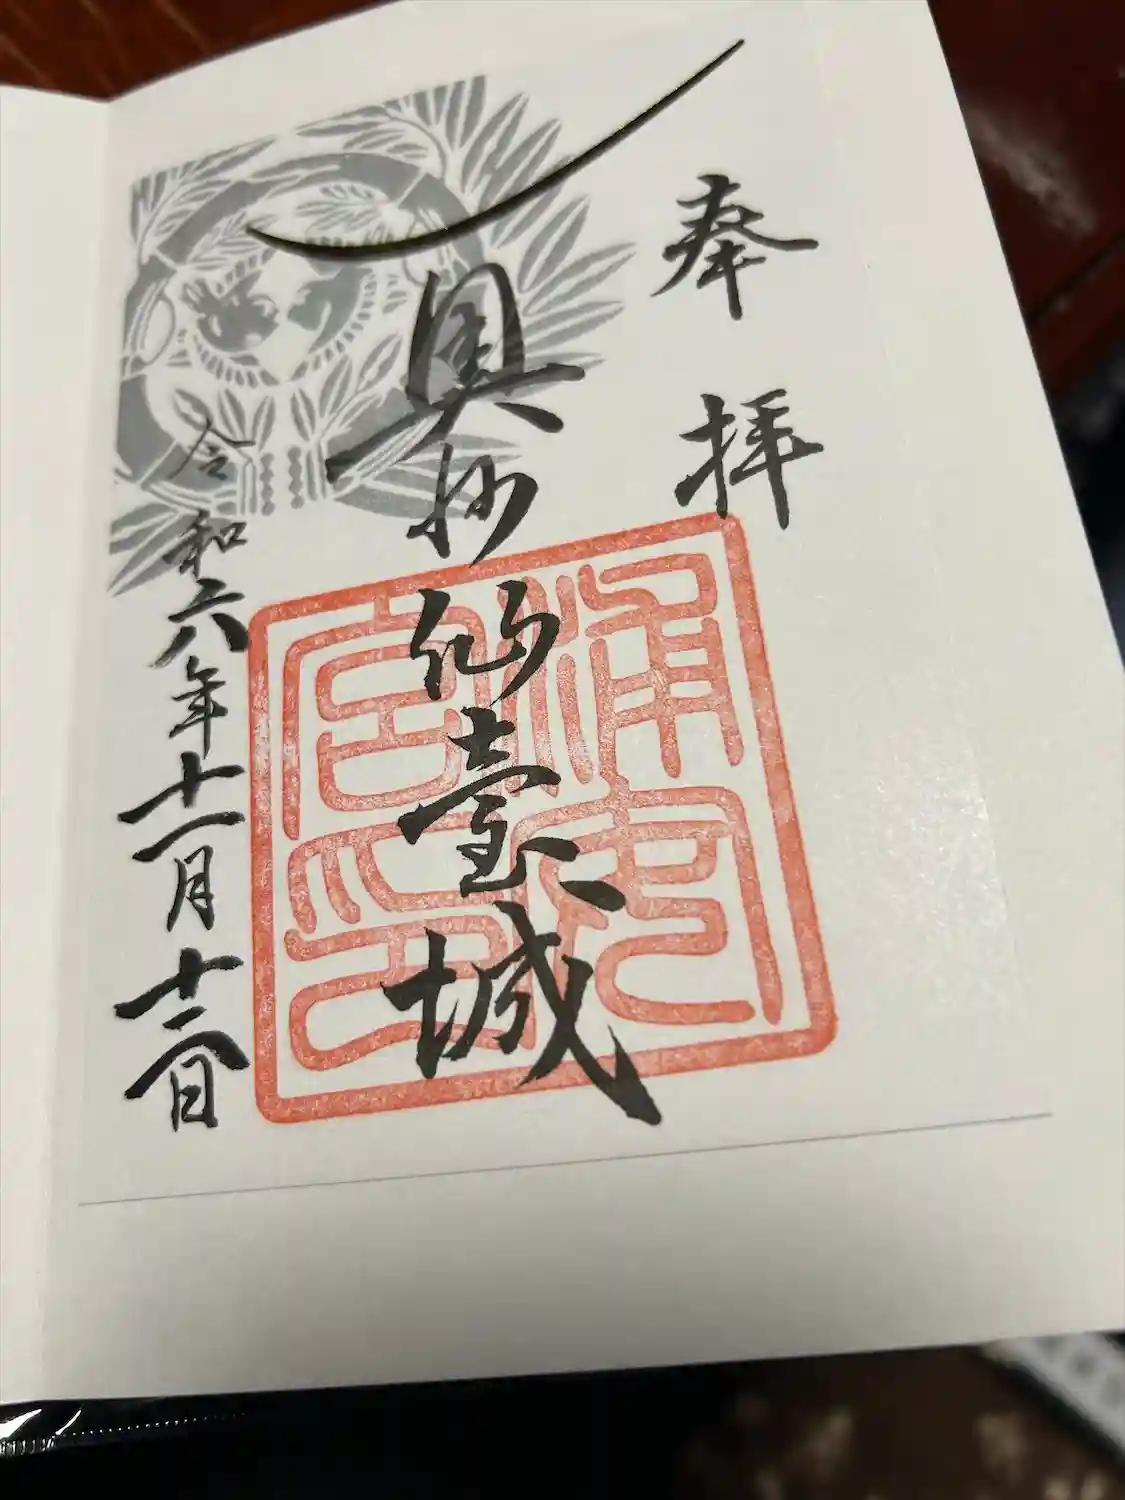 奉拝
奥州仙臺城
浦安
宮印
令和六年十一月十二日